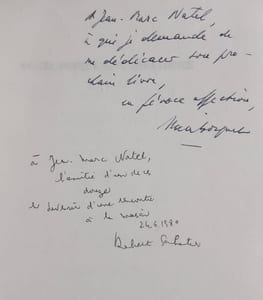 à Jean-Marc Natel,
à qui je demande de
me dédicacer son pro-
chain livre,
en féroce affection,
à Jean-Marc Natel,
l'amitié d'un de ces
le souvenir d'une rencontre
à la
24.6.1980
Robert